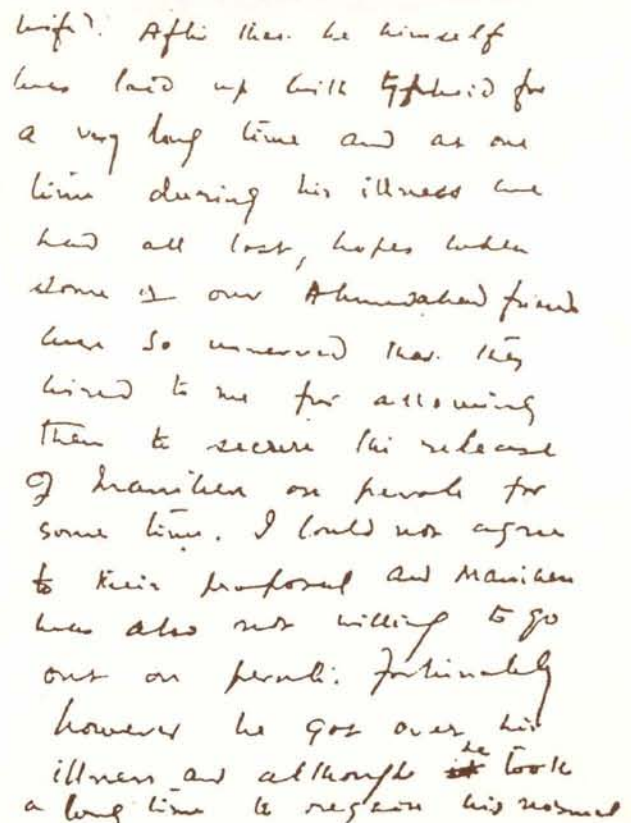 wife. After that he himself
was laid up with typhoid for
a very long time and at one
time during his illness we
had all lost, hopes when
some of our Ahmedabad friends
were so unnerved that they
wired to me for allowing
them to secure the release
of Maniben on parole for
some time. I could not agree
to their proposal and Maniben
was also not willing to go
out on parole. Fortunately
however he got over his
illness and although he took
a long time to regain his normal